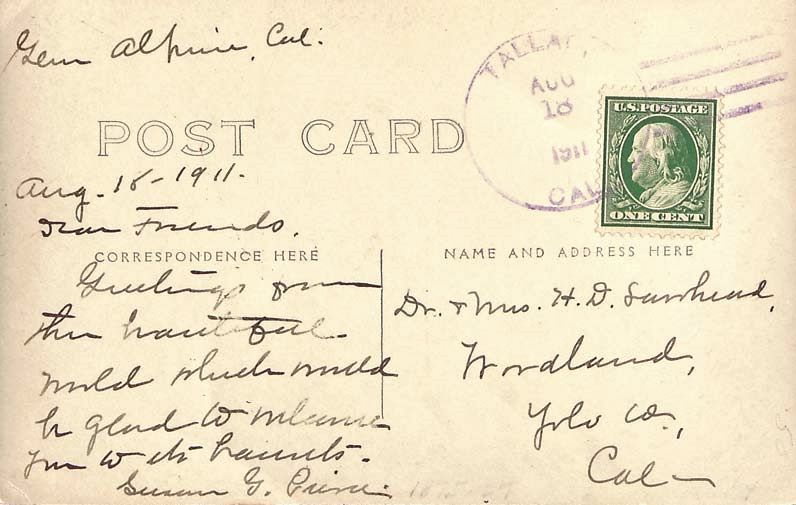 Glen Alpine, Cal.
TALLA
AUG
18
1911
CAL.
U.S. POSTAGE
ONE CENT
POST CARD
Aug. 18-1911.
Dear Friends,
CORRESPONDENCE HERE
Greetings from
this beautiful
world which would
be glad to welcome
you to its haunts.
Susan G.
NAME AND ADDRESS HERE
Dr. & Mrs. H. D.
Woodland,
Yolo Co.,
Cal-